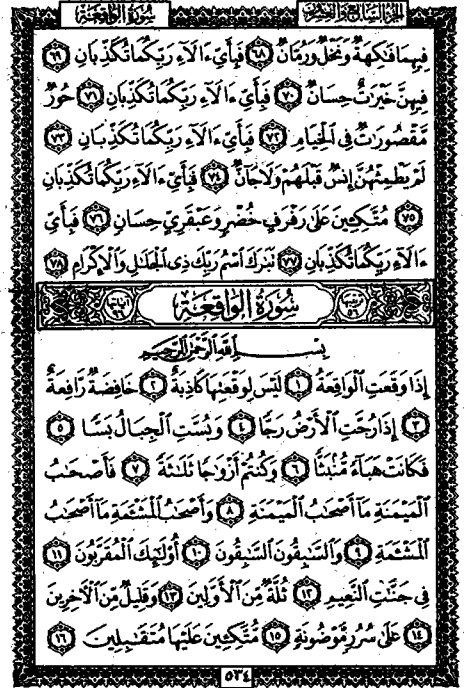 الجزء السابع والعشرون سورة الواقعة
فِيهِمَا فَٰكِهَةٌ وَنَخْلٌ وَرُمَّانٌ ٦٨ فَبِأَيِّ ءَالَآءِ رَبِّكُمَا تُكَذِّبَانِ ٦٩
فِيهِنَّ خَيْرَٰتٌ حِسَانٌ ٧٠ فَبِأَيِّ ءَالَآءِ رَبِّكُمَا تُكَذِّبَانِ ٧١ حُورٌ
مَّقْصُورَٰتٌ فِي ٱلْخِيَامِ ٧٢ فَبِأَيِّ ءَالَآءِ رَبِّكُمَا تُكَذِّبَانِ ٧٣
لَمْ يَطْمِثْهُنَّ إِنسٌ قَبْلَهُمْ وَلَا جَآنٌّ ٧٤ فَبِأَيِّ ءَالَآءِ رَبِّكُمَا تُكَذِّبَانِ
٧٥ مُتَّكِـِٔينَ عَلَىٰ رَفْرَفٍ خُضْرٍ وَعَبْقَرِيٍّ حِسَانٍ ٧٦ فَبِأَيِّ
ءَالَآءِ رَبِّكُمَا تُكَذِّبَانِ ٧٧ تَبَٰرَكَ ٱسْمُ رَبِّكَ ذِي ٱلْجَلَٰلِ وَٱلْإِكْرَامِ ٧٨
ترتيبها ٥٦ سُورَةُ الوَاقِعَةِ آياتها ٩٦
بِسْمِ ٱللَّهِ ٱلرَّحْمَٰنِ ٱلرَّحِيمِ
إِذَا وَقَعَتِ ٱلْوَاقِعَةُ ١ لَيْسَ لِوَقْعَتِهَا كَاذِبَةٌ ٢ خَافِضَةٌ رَّافِعَةٌ
٣ إِذَا رُجَّتِ ٱلْأَرْضُ رَجًّا ٤ وَبُسَّتِ ٱلْجِبَالُ بَسًّا ٥
فَكَانَتْ هَبَآءً مُّنۢبَثًّا ٦ وَكُنتُمْ أَزْوَٰجًا ثَلَٰثَةً ٧ فَأَصْحَٰبُ
ٱلْمَيْمَنَةِ مَآ أَصْحَٰبُ ٱلْمَيْمَنَةِ ٨ وَأَصْحَٰبُ ٱلْمَشْـَٔمَةِ مَآ أَصْحَٰبُ
ٱلْمَشْـَٔمَةِ ٩ وَٱلسَّٰبِقُونَ ٱلسَّٰبِقُونَ ١٠ أُو۟لَٰٓئِكَ ٱلْمُقَرَّبُونَ ١١
فِي جَنَّٰتِ ٱلنَّعِيمِ ١٢ ثُلَّةٌ مِّنَ ٱلْأَوَّلِينَ ١٣ وَقَلِيلٌ مِّنَ ٱلْـَٔاخِرِينَ
١٤ عَلَىٰ سُرُرٍ مَّوْضُونَةٍ ١٥ مُّتَّكِـِٔينَ عَلَيْهَا مُتَقَٰبِلِينَ ١٦
٥٣٤